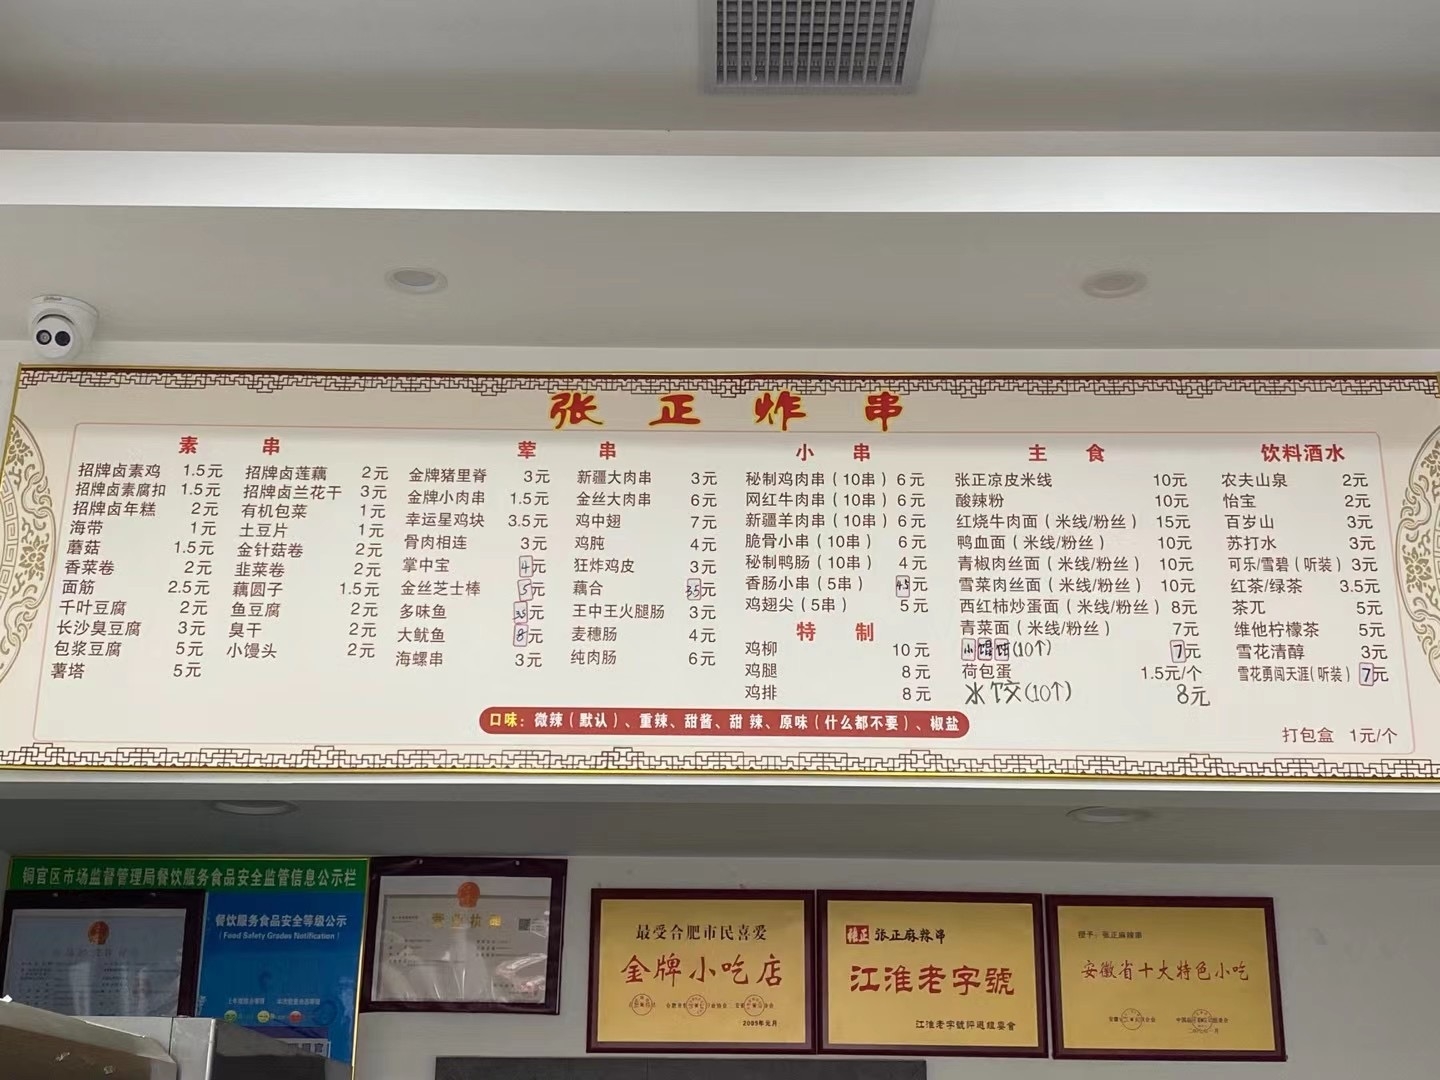 张正炸串
素串
招牌卤素鸡 1.5元
招牌卤素腐扣 1.5元
招牌卤年糕 2元
海带 1元
蘑菇 1.5元
香菜卷 2元
面筋 2.5元
千叶豆腐 2元
长沙臭豆腐 3元
包浆豆腐 5元
薯塔 5元
招牌卤莲藕 2元
招牌卤兰花干 3元
有机包菜 1元
土豆片 1元
金针菇卷 2元
韭菜卷 2元
藕圆子 1.5元
鱼豆腐 2元
臭干 2元
小馒头 2元
荤串
金牌猪里脊 3元
金牌小肉串 1.5元
幸运星鸡块 3.5元
骨肉相连 3元
掌中宝 4元
金丝芝士棒 5元
多味鱼 3.5元
大鱿鱼 8元
海螺串 3元
新疆大肉串 3元
金丝大肉串 6元
鸡中翅 7元
鸡肫 4元
狂炸鸡皮 3元
藕合 3.5元
王中王火腿肠 3元
麦穗肠 4元
纯肉肠 6元
小串
秘制鸡肉串(10串) 6元
网红牛肉串(10串) 6元
新疆羊肉串(10串) 6元
脆骨小串(10串) 6元
秘制鸭肠(10串) 4元
香肠小串(5串) 4.5元
鸡翅尖(5串) 5元
特制
鸡柳 10元
鸡腿 8元
鸡排 8元
主食
张正凉皮米线 10元
酸辣粉 10元
红烧牛肉面(米线/粉丝) 15元
鸭血面(米线/粉丝) 10元
青椒肉丝面(米线/粉丝) 10元
雪菜肉丝面(米线/粉丝) 10元
西红柿炒蛋面(米线/粉丝) 8元
青菜面(米线/粉丝) 7元
小馄饨(10个) 7元
荷包蛋 1.5元/个
水饺(10个) 8元
饮料酒水
农夫山泉 2元
怡宝 2元
百岁山 3元
苏打水 3元
可乐/雪碧(听装) 3元
红茶/绿茶 3.5元
茶兀 5元
维他柠檬茶 5元
雪花清醇 3元
雪花勇闯天涯(听装) 7元
口味：微辣(默认)、重辣、甜酱、甜辣、原味(什么都不要)、椒盐
打包盒 1元/个
铜官区市场监督管理局餐饮服务食品安全监管信息公示栏
餐饮服务食品安全等级公示
(Food Safety Grades Notification)
营业执
最受合肥市民喜爱
金牌小吃店
2005年元月
張正 张正麻辣串
江淮老字號
江淮老字號评选组委会
授予：张正麻辣串
安徽省十大特色小吃